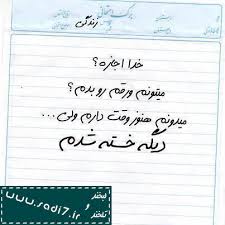 برگ امتحانی
زندگی
خدا اجازه؟
میتونم ورقم رو بدم؟
میدونم هنوز وقت دارم ولی...
دیگه خسته شدم
لبخند
و
تلخند
www.sadi7.ir